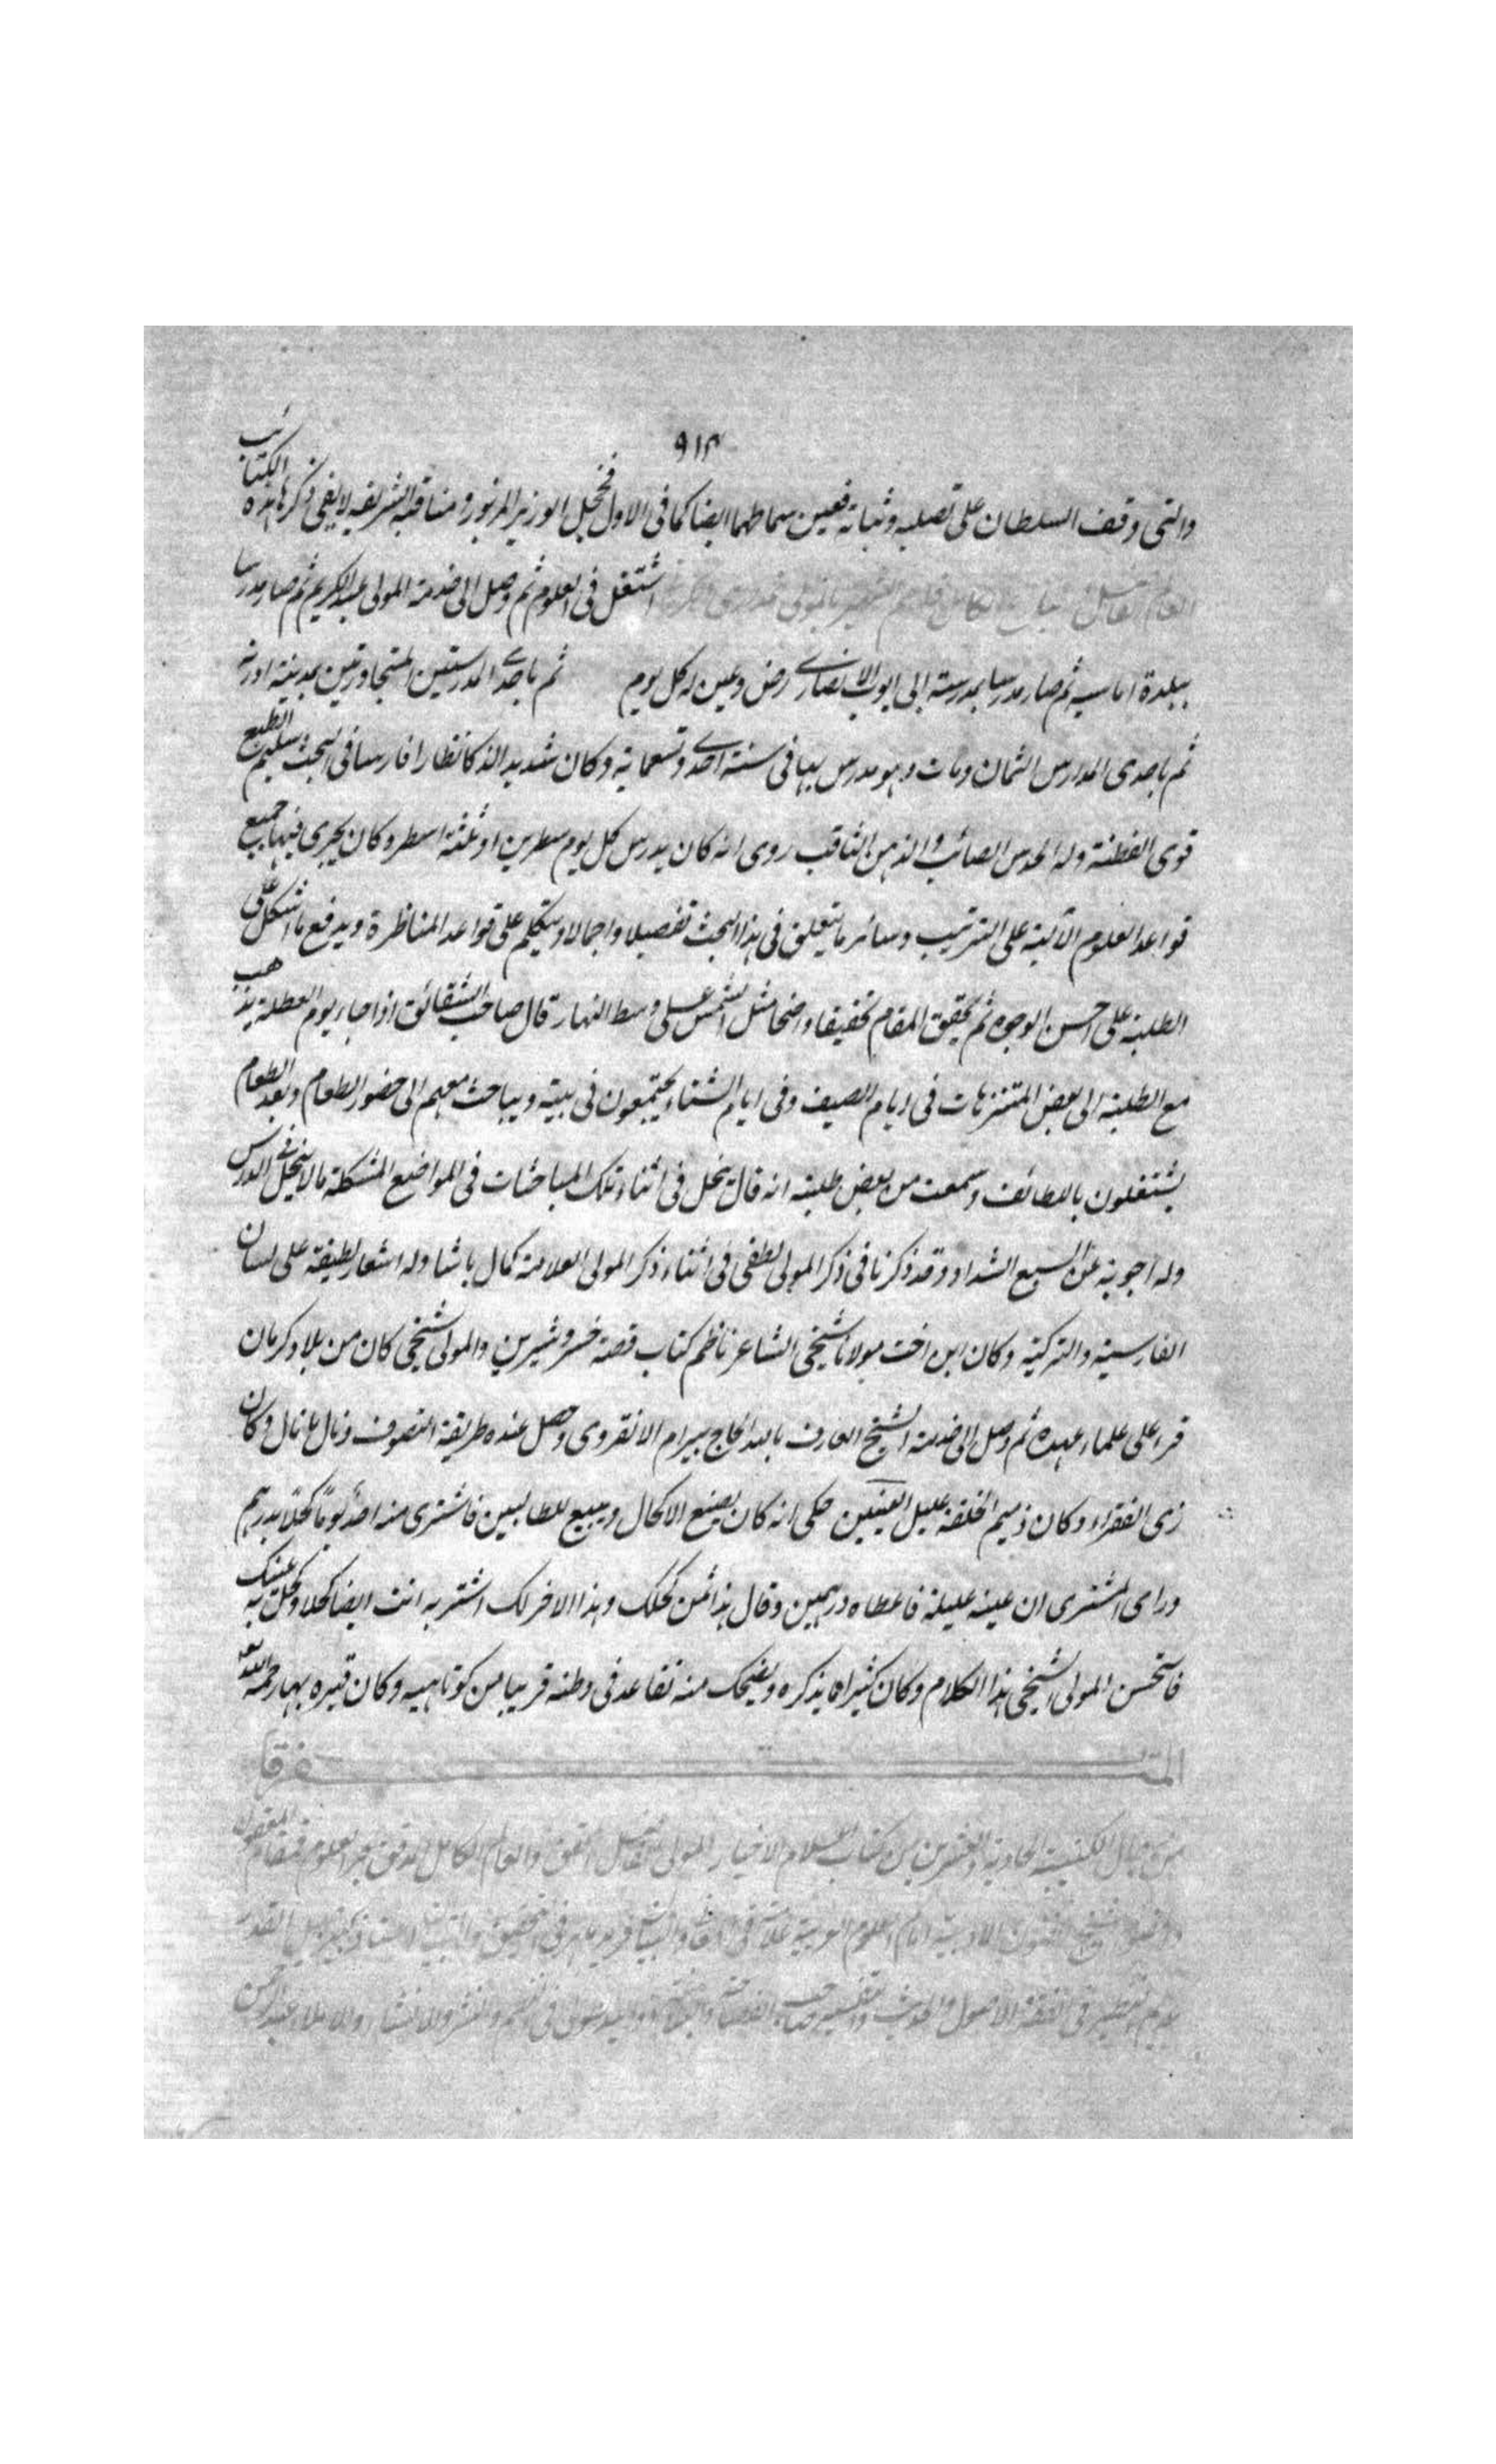 ٩١٣
والتى وقف السلطان على تصلبه وثباته فعين سماطهما ايضا كما فى الاول فخجل الوزير المزبور ومناقبه الشريفه لا يفى ذكرها هذه الكتائب
العالم الفاضل الكامل قاسم الشهير بالمولى اشتغل فى العلوم ثم وصل الى خدمة المولى عبد الكريم ثم صار مدرسا
ببلدة اماسيه ثم صار مدرسا بمدرسة ابى ايوب الانصارى رض وعين له كل يوم ثم باحدى المدرستين المتجاورتين بمدينة ادرنه
ثم باحدى المدارس الثمان ومات وهو مدرس بها فى سنة احدى وتسعماية وكان شديد الذكا نظارا فارسا فى البحث سليم الطبع
قوى الفطنة وله الحدس الصائب والذهن الثاقب روى انه كان يدرس كل يوم سطرين او ثلثة اسطر وكان يجرى فيها جميع
قواعد العلوم الآلية على الترتيب وسائر ما يتعلق فى هذا البحث تفصيلا واجمالا ويتكلم على قواعد المناظرة ويدفع ما اشكل على
الطلبة على احسن الوجوه ثم يحقق المقام تحقيقا واضحا مثل الشمس على وسط النهار قال صاحب الشقائق اذا جاء يوم العطلة يذهب
مع الطلبة الى بعض المتنزهات فى ايام الصيف وفى ايام الشتاء يجتمعون فى بيته ويباحث معهم الى حضور الطعام وبعد الطعام
يشتغلون باللطائف وسمعت من بعض طلبته انه قال ينحل فى اثناء تلك المباحثات فى المواضع المشكلة ما لا ينحل فى الدرس
وله اجوبة عن السبع الشداد وقد ذكرنا فى ذكر المولى لطفى فى اثناء ذكر المولى العلامة كمال باشا وله اشعار لطيفة على لسان
الفارسية والتركية وكان ابن اخت مولانا شيخى الشاعر ناظم كتاب قصة خسرو شيرين والمولى شيخى كان من بلاد كرميان
قرء على علماء عهده ثم وصل الى خدمة الشيخ العارف بالله الحاج بيرام الانقروى وحصل عنده طريقة التصوف ونال ما نال وكان
زى الفقراء وكان ذميم الخلقة عليل العينين حكى انه كان يصنع الاكحال ويبيع للطالبين فاشترى منه احد يوما كحلا بدرهم
وراى المشترى ان عينه عليلة فاعطاه درهمين وقال هذا ثمن كحلك وهذا الاخر لك اشتر به انت ايضا كحلا وكحل به عينك
فاستحسن المولى الشيخى هذا الكلام وكان كثيرا ما يذكره ويضحك منه تقاعد فى وطنه قريبا من كوتاهيه وكان قبره بها رحمه الله تعالى
المتفرقا
من رجال الكتيبة الحادية والعشرين من كتاب اعلام الاخيار المولى الفاضل المحقق والعالم الكامل المدقق بحر العلوم
الفنون الادبية امام العلوم العربية
عديم النظير فى الفقه والاصول والحديث والتفسير صاحب